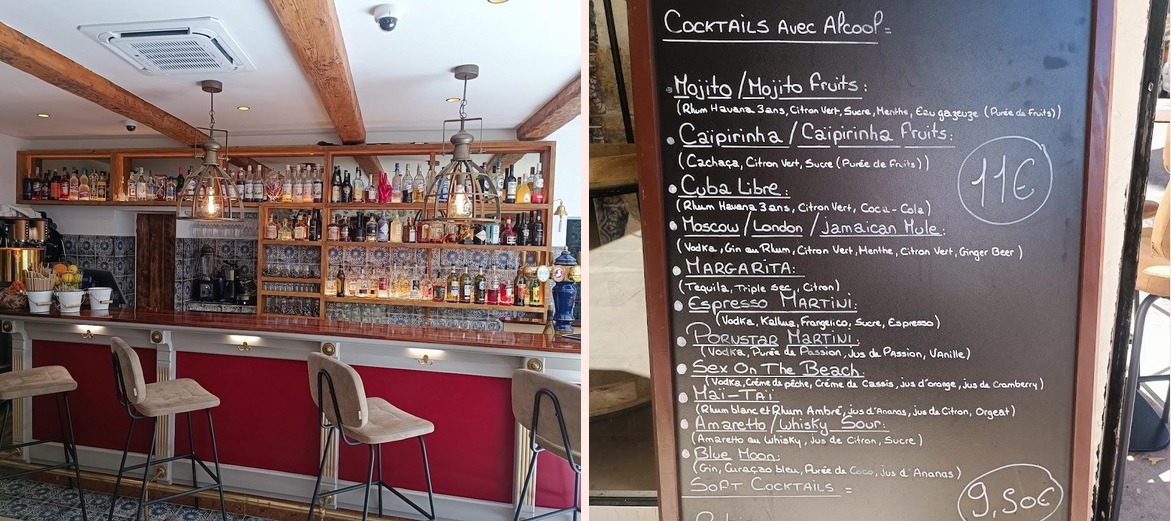 Cocktails Avec Alcool=
Mojito/Mojito Fruits:
(Rhum Havana 3ans, Citron Vert, Sucre, Menthe, Eau gazeuze (Purée de Fruits)
Caïpirinha/Caïpirinha Fruits:
(Cachaça, Citron Vert, Sucre (Purée de fruits))
11€
Cuba Libre:
(Rhum Havana 3ans, Citron Vert, Coca-Cola)
Moscow/London/Jamaican Mule:
(Vodka, Gin ou Rhum, Citron Vert, Menthe, Citron Vert, Ginger Beer)
MARGARITA:
(Tequila, Triple sec, Citron)
Espresso MARTINI:
(Vodka, Kalhua, Frangelico, Sucre, Espresso)
PORNSTAR MARTINI:
(Vodka, Purée de Passion, Jus de Passion, Vanille)
Sex On The Beach:
(Vodka, Crème de pêche, Crème de Cassis, jus d'orange, jus de Cramberry)
Maï-Taï
(Rhum blanc et Rhum Ambré, jus d'Ananas, jus de Citron, Orgeat)
Amaretto/Whisky Sour:
(Amaretto ou Whisky, jus de Citron, Sucre)
Blue Moon:
(Gin, Curaçao bleu, Purée de Coco, jus d'Ananas)
SOFT COCKTAILS =
9,50€